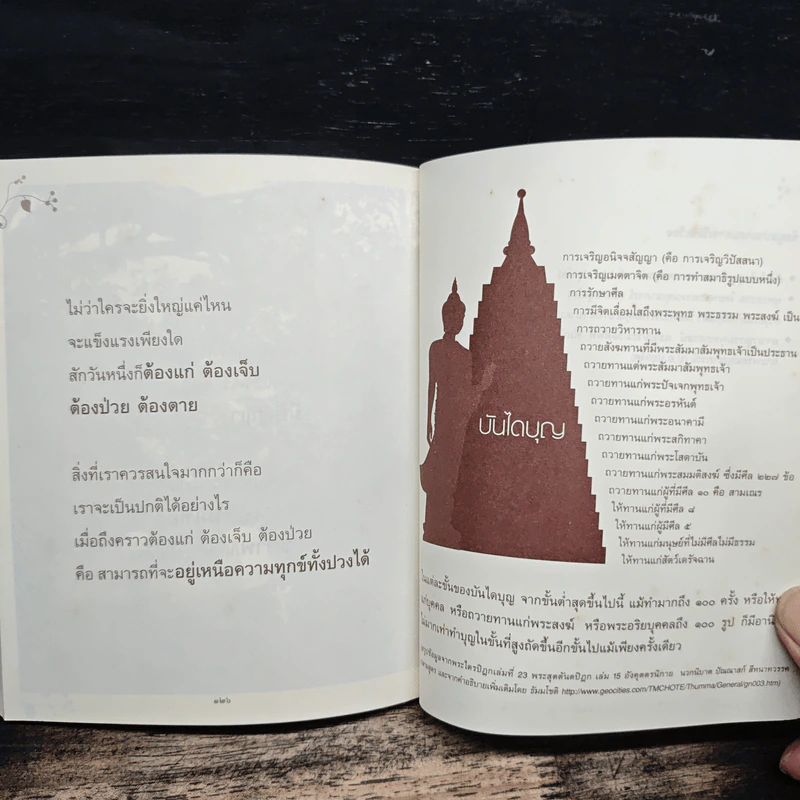 ไม่ว่าใครจะยิ่งใหญ่แค่ไหน
จะแข็งแรงเพียงใด
สักวันหนึ่งก็ต้องแก่ ต้องเจ็บ
ต้องป่วย ต้องตาย
สิ่งที่เราควรสนใจมากกว่าก็คือ
เราจะเป็นปกติได้อย่างไร
เมื่อถึงคราวต้องแก่ ต้องเจ็บ ต้องป่วย
คือ สามารถที่จะอยู่เหนือความทุกข์ทั้งปวงได้
๑๒๖
บันไดบุญ
การเจริญอนิจจสัญญา (คือ การเจริญวิปัสสนา)
การเจริญเมตตาจิต (คือ การทำสมาธิรูปแบบหนึ่ง)
การรักษาศีล
การมีจิตเลื่อมใสถึงพระพุทธ พระธรรม พระสงฆ์ เป็น
การถวายวิหารทาน
ถวายสังฆทานที่มีพระสัมมาสัมพุทธเจ้าเป็นประธาน
ถวายทานแด่พระสัมมาสัมพุทธเจ้า
ถวายทานแก่พระปัจเจกพุทธเจ้า
ถวายทานแก่พระอรหันต์
ถวายทานแก่พระอนาคามี
ถวายทานแก่พระสกิทาคา
ถวายทานแก่พระโสดาบัน
ถวายทานแก่พระสมมติสงฆ์ ซึ่งมีศีล ๒๒๗ ข้อ
ถวายทานแก่ผู้ที่มีศีล ๑๐ คือ สามเณร
ให้ทานแก่ผู้ที่มีศีล ๘
ให้ทานแก่ผู้มีศีล ๕
ให้ทานแก่มนุษย์ที่ไม่มีศีลไม่มีธรรม
ให้ทานแก่สัตว์เดรัจฉาน
ในแต่ละขั้นของบันไดบุญ จากขั้นต่ำสุดขึ้นไปนี้ แม้ทำมากถึง ๑๐๐ ครั้ง หรือให้
แก่บุคคล หรือถวายทานแก่พระสงฆ์ หรือพระอริยบุคคลถึง ๑๐๐ รูป ก็มีอานิ
ไม่มากเท่าทำบุญในขั้นที่สูงถัดขึ้นอีกขั้นไปแม้เพียงครั้งเดียว
ข้อมูลจากพระไตรปิฎกเล่มที่ 23 พระสุตตันตปิฎก เล่ม 15 อังคุตตรนิกาย นวกนิบาต ปัณณาสก์ สีหนาทวรรค
และจากคำอธิบายเพิ่มเติมโดย ธัมมโชติ http://www.geocities.com/TMCHOTE/Thumma/General/gn003.htm)